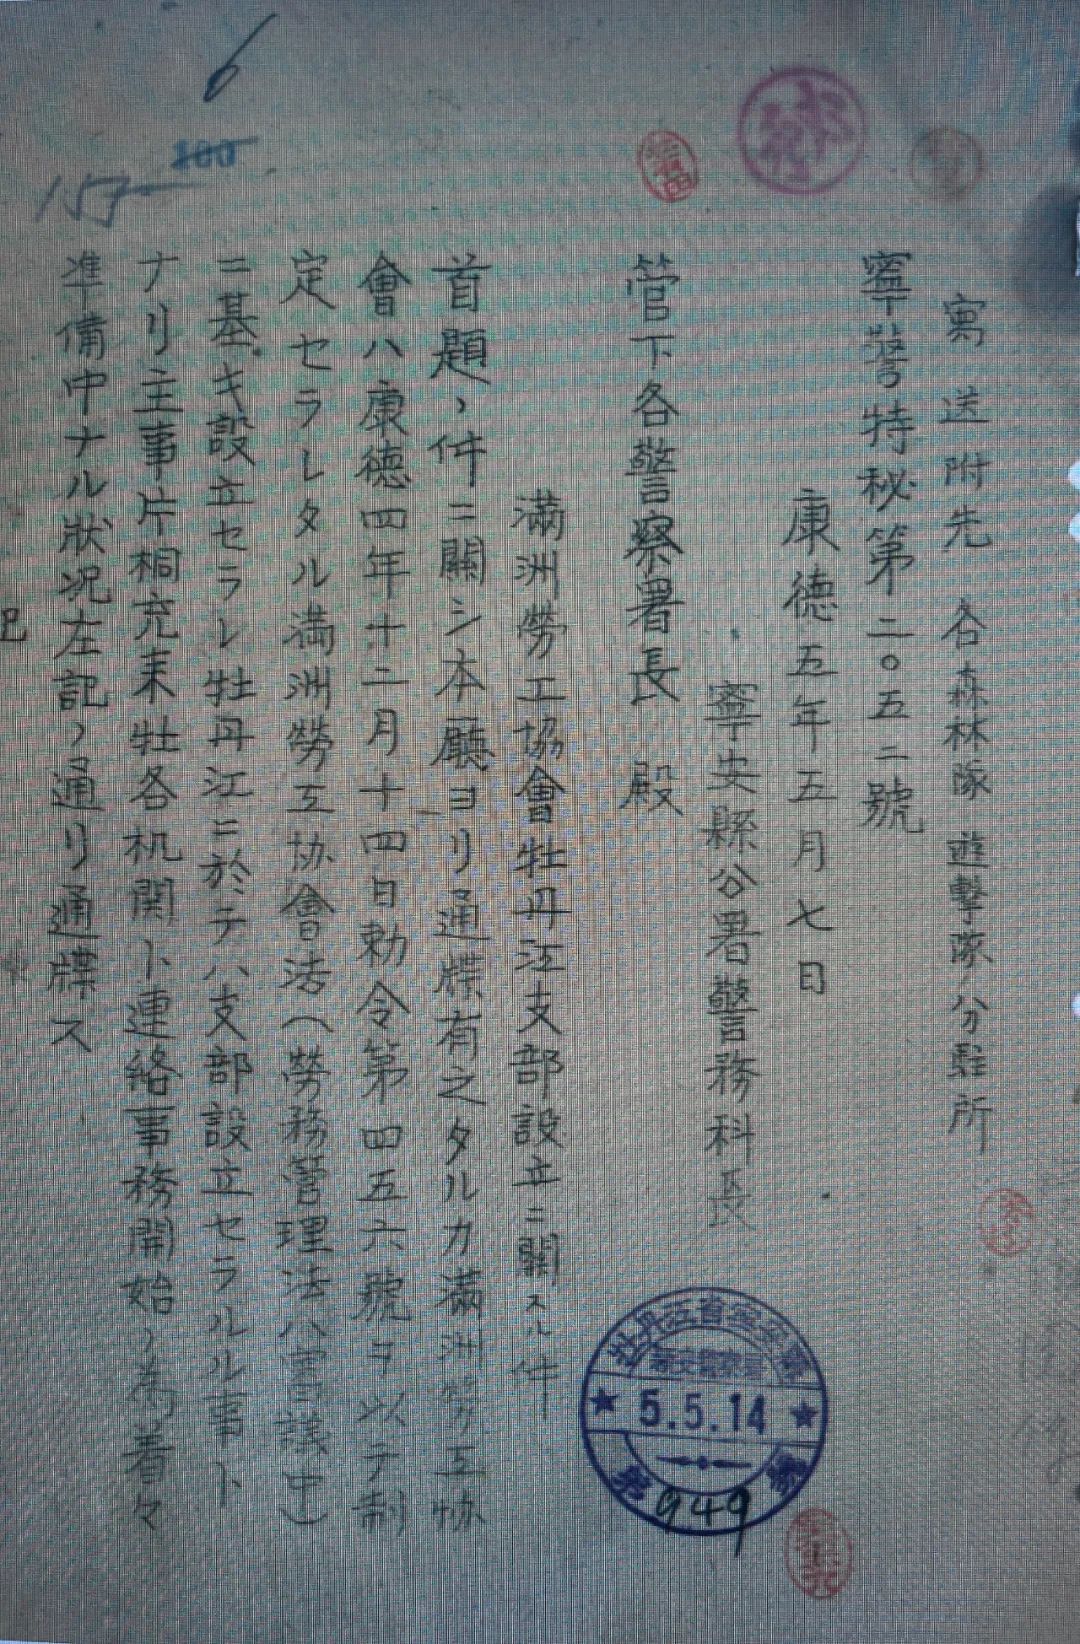 寫送附先 各森林隊 遊撃隊、分駐所
寧警特秘第二〇五二號
康徳五年五月七日
寧安縣公署警務科長
管下各警察署長殿
滿洲勞工協會牡丹江支部設立ニ關スル件
首題ノ件ニ關シ本廳ヨリ通牒有之タルカ滿洲勞工協
會ハ康徳四年十二月十四日勅令第四五六號ヲ以テ制
定セラレタル満洲勞工协會法(勞務管理法ハ審議中)
ニ基キ設立セラレ牡丹江ニ於テハ支部設立セラルル事ト
ナリ主事片桐充来牡各机関ト連絡事務開始ノ為着々
準備中ナル狀况左記ノ通リ通牒ス
記
牡丹江省寧安縣
5.5.14
第949號
6
100
157
發